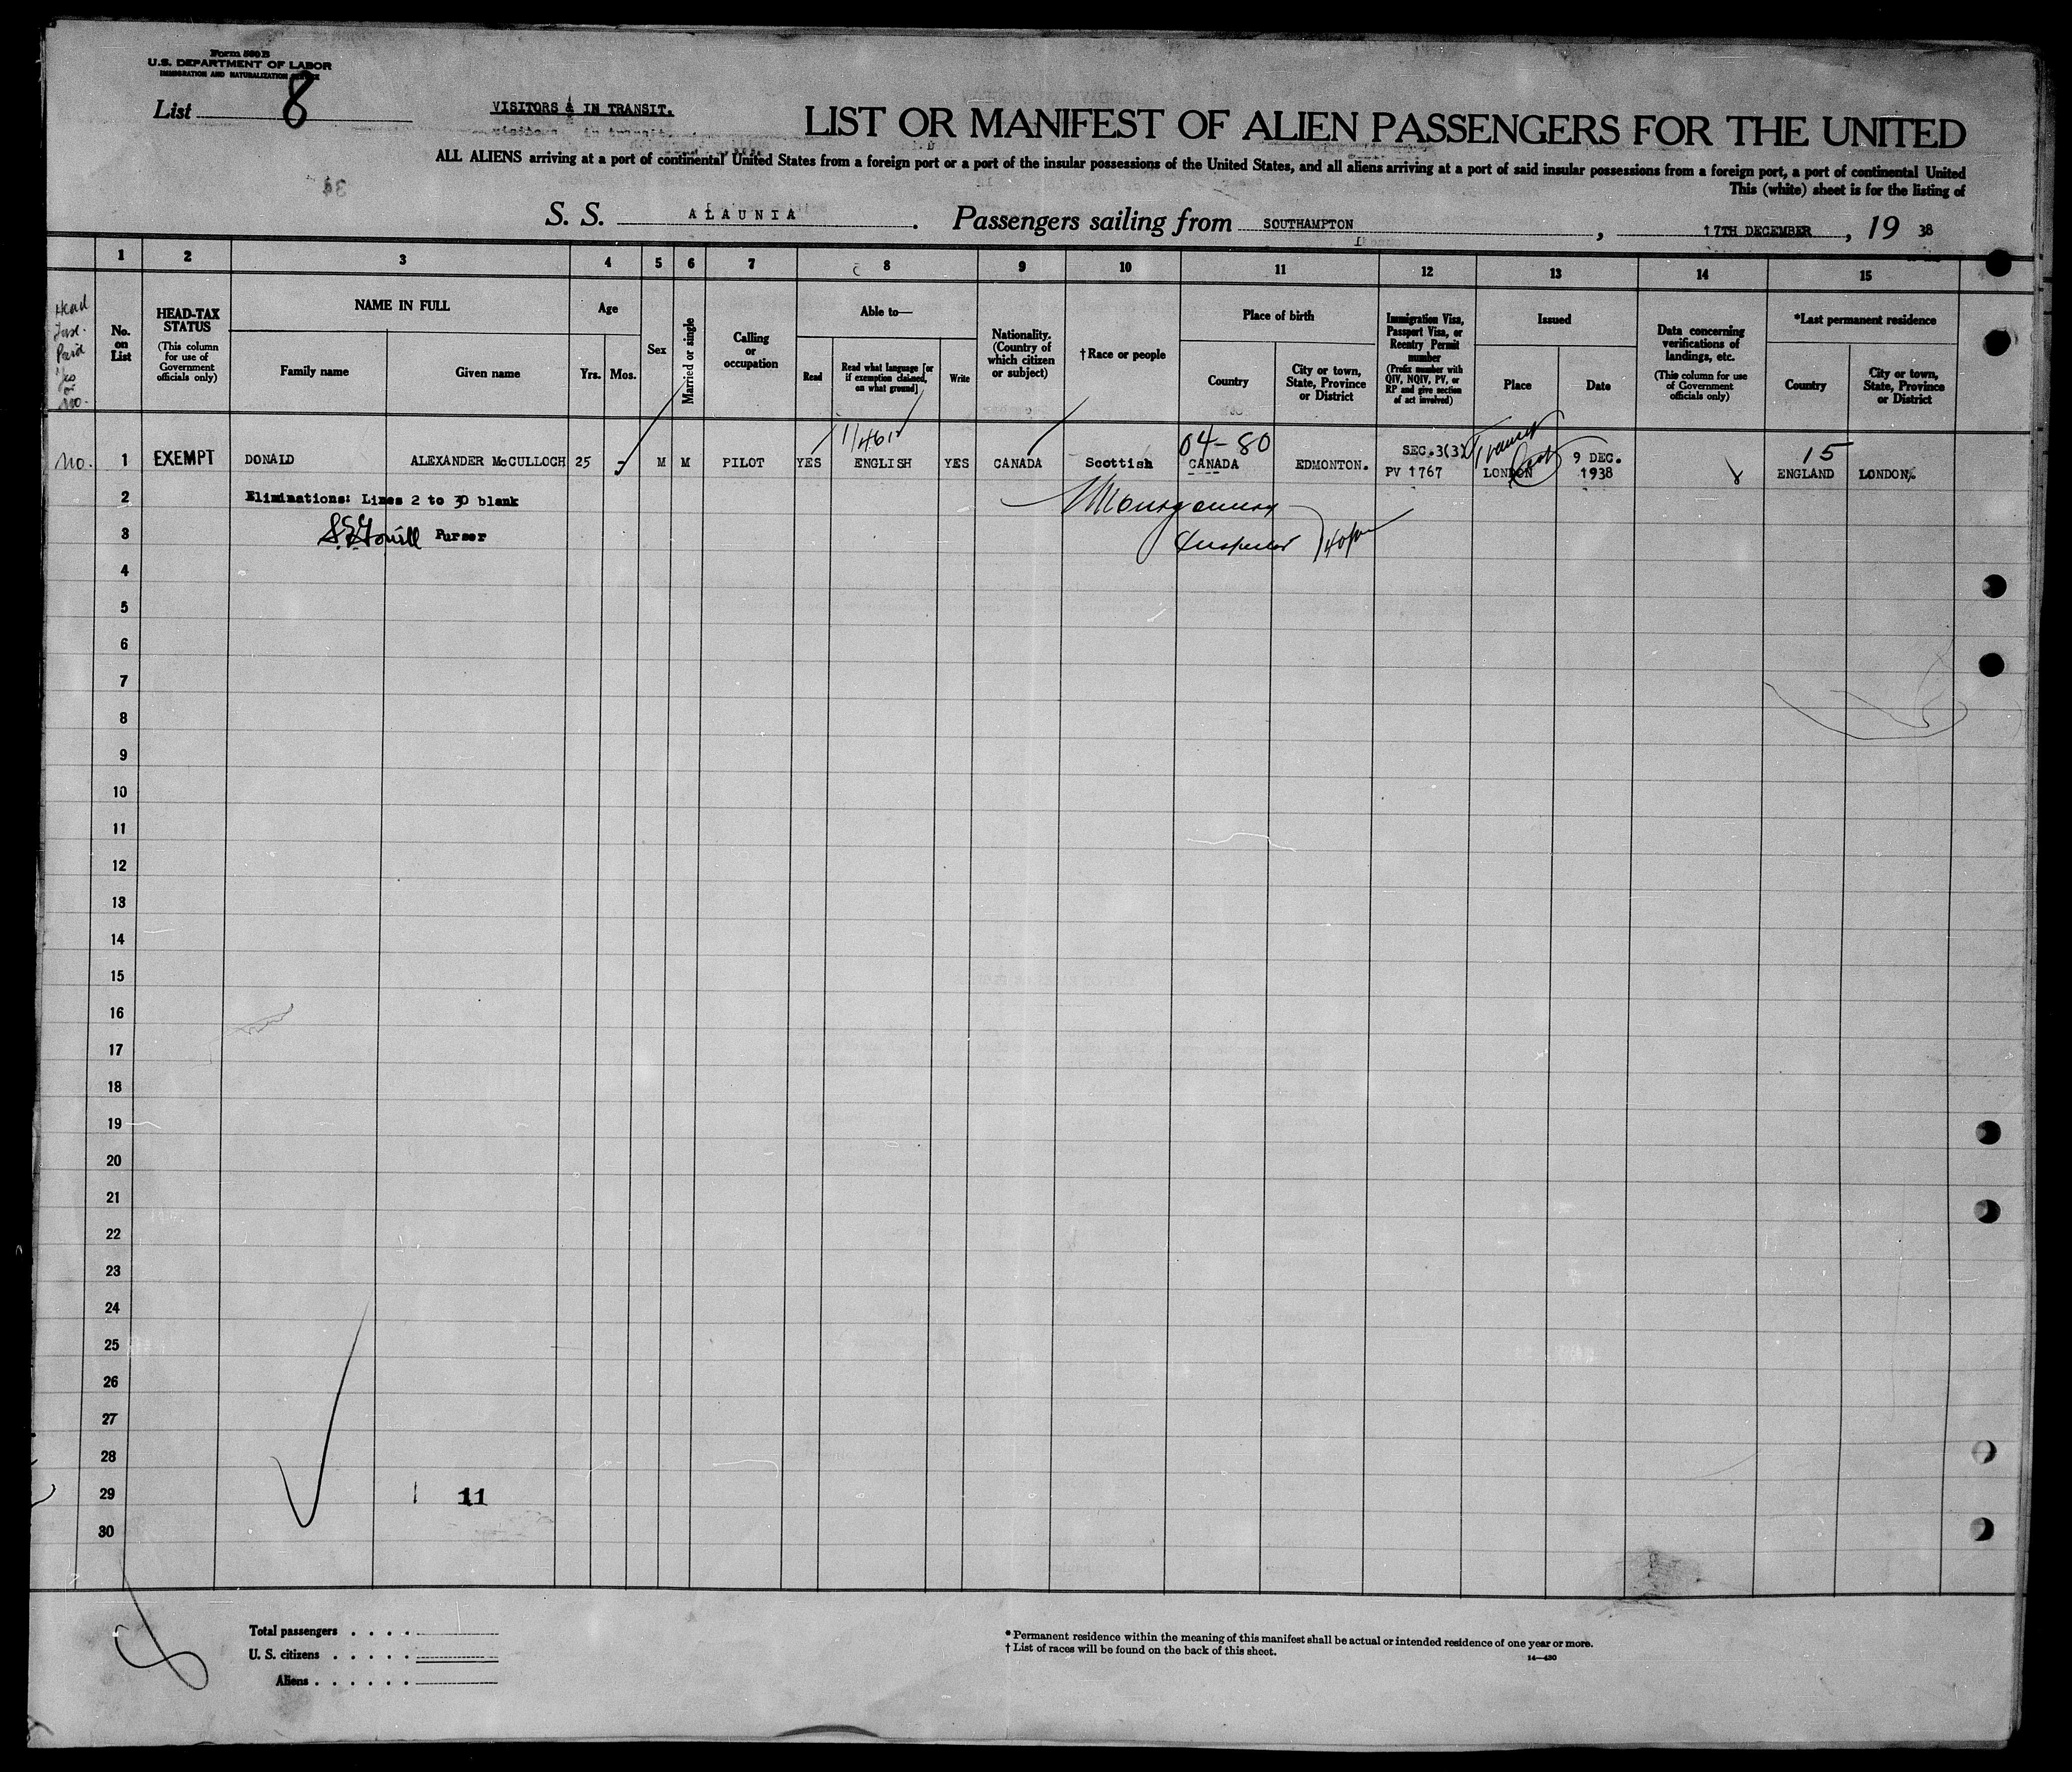 Form 569 B
U.S. DEPARTMENT OF LABOR
IMMIGRATION AND NATURALIZATION SERVICE
List 8
VISITORS & IN TRANSIT.
LIST OR MANIFEST OF ALIEN PASSENGERS FOR THE UNITED
ALL ALIENS arriving at a port of continental United States from a foreign port or a port of the insular possessions of the United States, and all aliens arriving at a port of said insular possessions from a foreign port, a port of continental United
This (white) sheet is for the listing of
S. S. ALAUNIA. Passengers sailing from SOUTHAMPTON, 17TH DECEMBER, 19 38
1 2 3 4 5 6 7 8 9 10 11 12 13 14 15
Head
Paid
Yes
or
No.
No. on List
HEAD-TAX STATUS
(This column for use of Government officials only)
NAME IN FULL
Family name
Given name
Age
Yrs. Mos.
Sex
Married or single
Calling or occupation
Able to—
Read
Read what language [or if exemption claimed, on what ground]
Write
Nationality. (Country of which citizen or subject)
†Race or people
Place of birth
Country
City or town, State, Province or District
Immigration Visa, Passport Visa, or Reentry Permit number
(Prefix number with QIV, NQIV, PV, or RP and give section of act involved)
Issued
Place
Date
Data concerning verifications of landings, etc.
(This column for use of Government officials only)
*Last permanent residence
Country
City or town, State, Province or District
04-80 SEC.3(3) Transit 9 DEC. 15
No. 1 EXEMPT DONALD ALEXANDER McCULLOCH 25 M M PILOT YES ENGLISH YES CANADA Scottish CANADA EDMONTON. PV 1767 LONDON 1938 ENGLAND LONDON.
2 Eliminations: Lines 2 to 30 blank Montgomery
3 Purser Inspector
4
5
6
7
8
9
10
11
12
13
14
15
16
17
18
19
20
21
22
23
24
25
26
27
28
29 11
30
8
Total passengers . . . .
U. S. citizens . . . . .
Aliens . . . . . .
* Permanent residence within the meaning of this manifest shall be actual or intended residence of one year or more.
† List of races will be found on the back of this sheet.
14—430